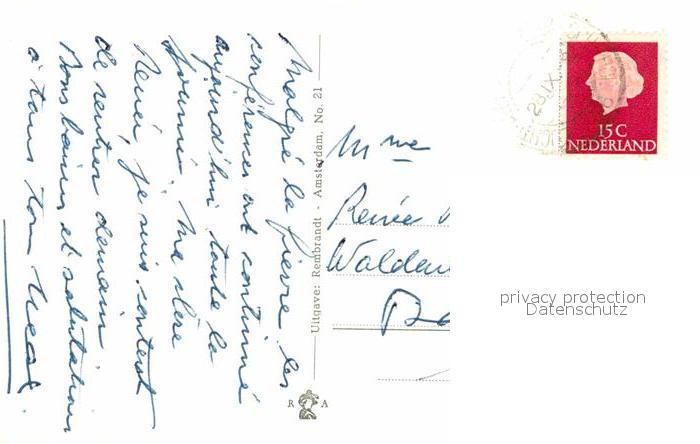 Malgré la fièvre les
conférences ont continué
aujourd'hui toute la
journée. Ma chère
Renée, je suis content
de rentrer demain
Bons baisers et salutations
à tous ton
Uitgave: Rembrandt - Amsterdam, No. 21
R A
Mme
Renée
Ba
28 IX
15 C
NEDERLAND
privacy protection
Datenschutz